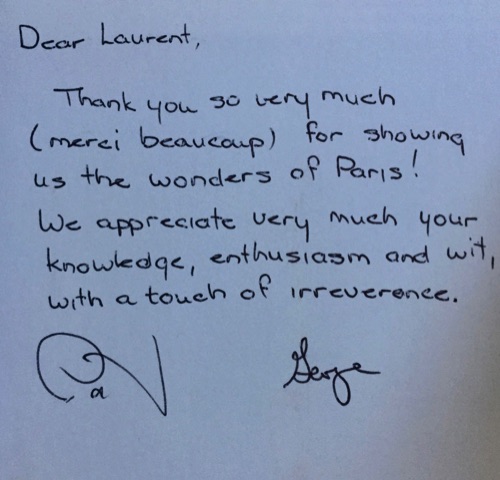 Dear Laurent,
Thank you so very much
(merci beaucoup) for showing
us the wonders of Paris!
We appreciate very much your
knowledge, enthusiasm and wit,
with a touch of irreverence.
George